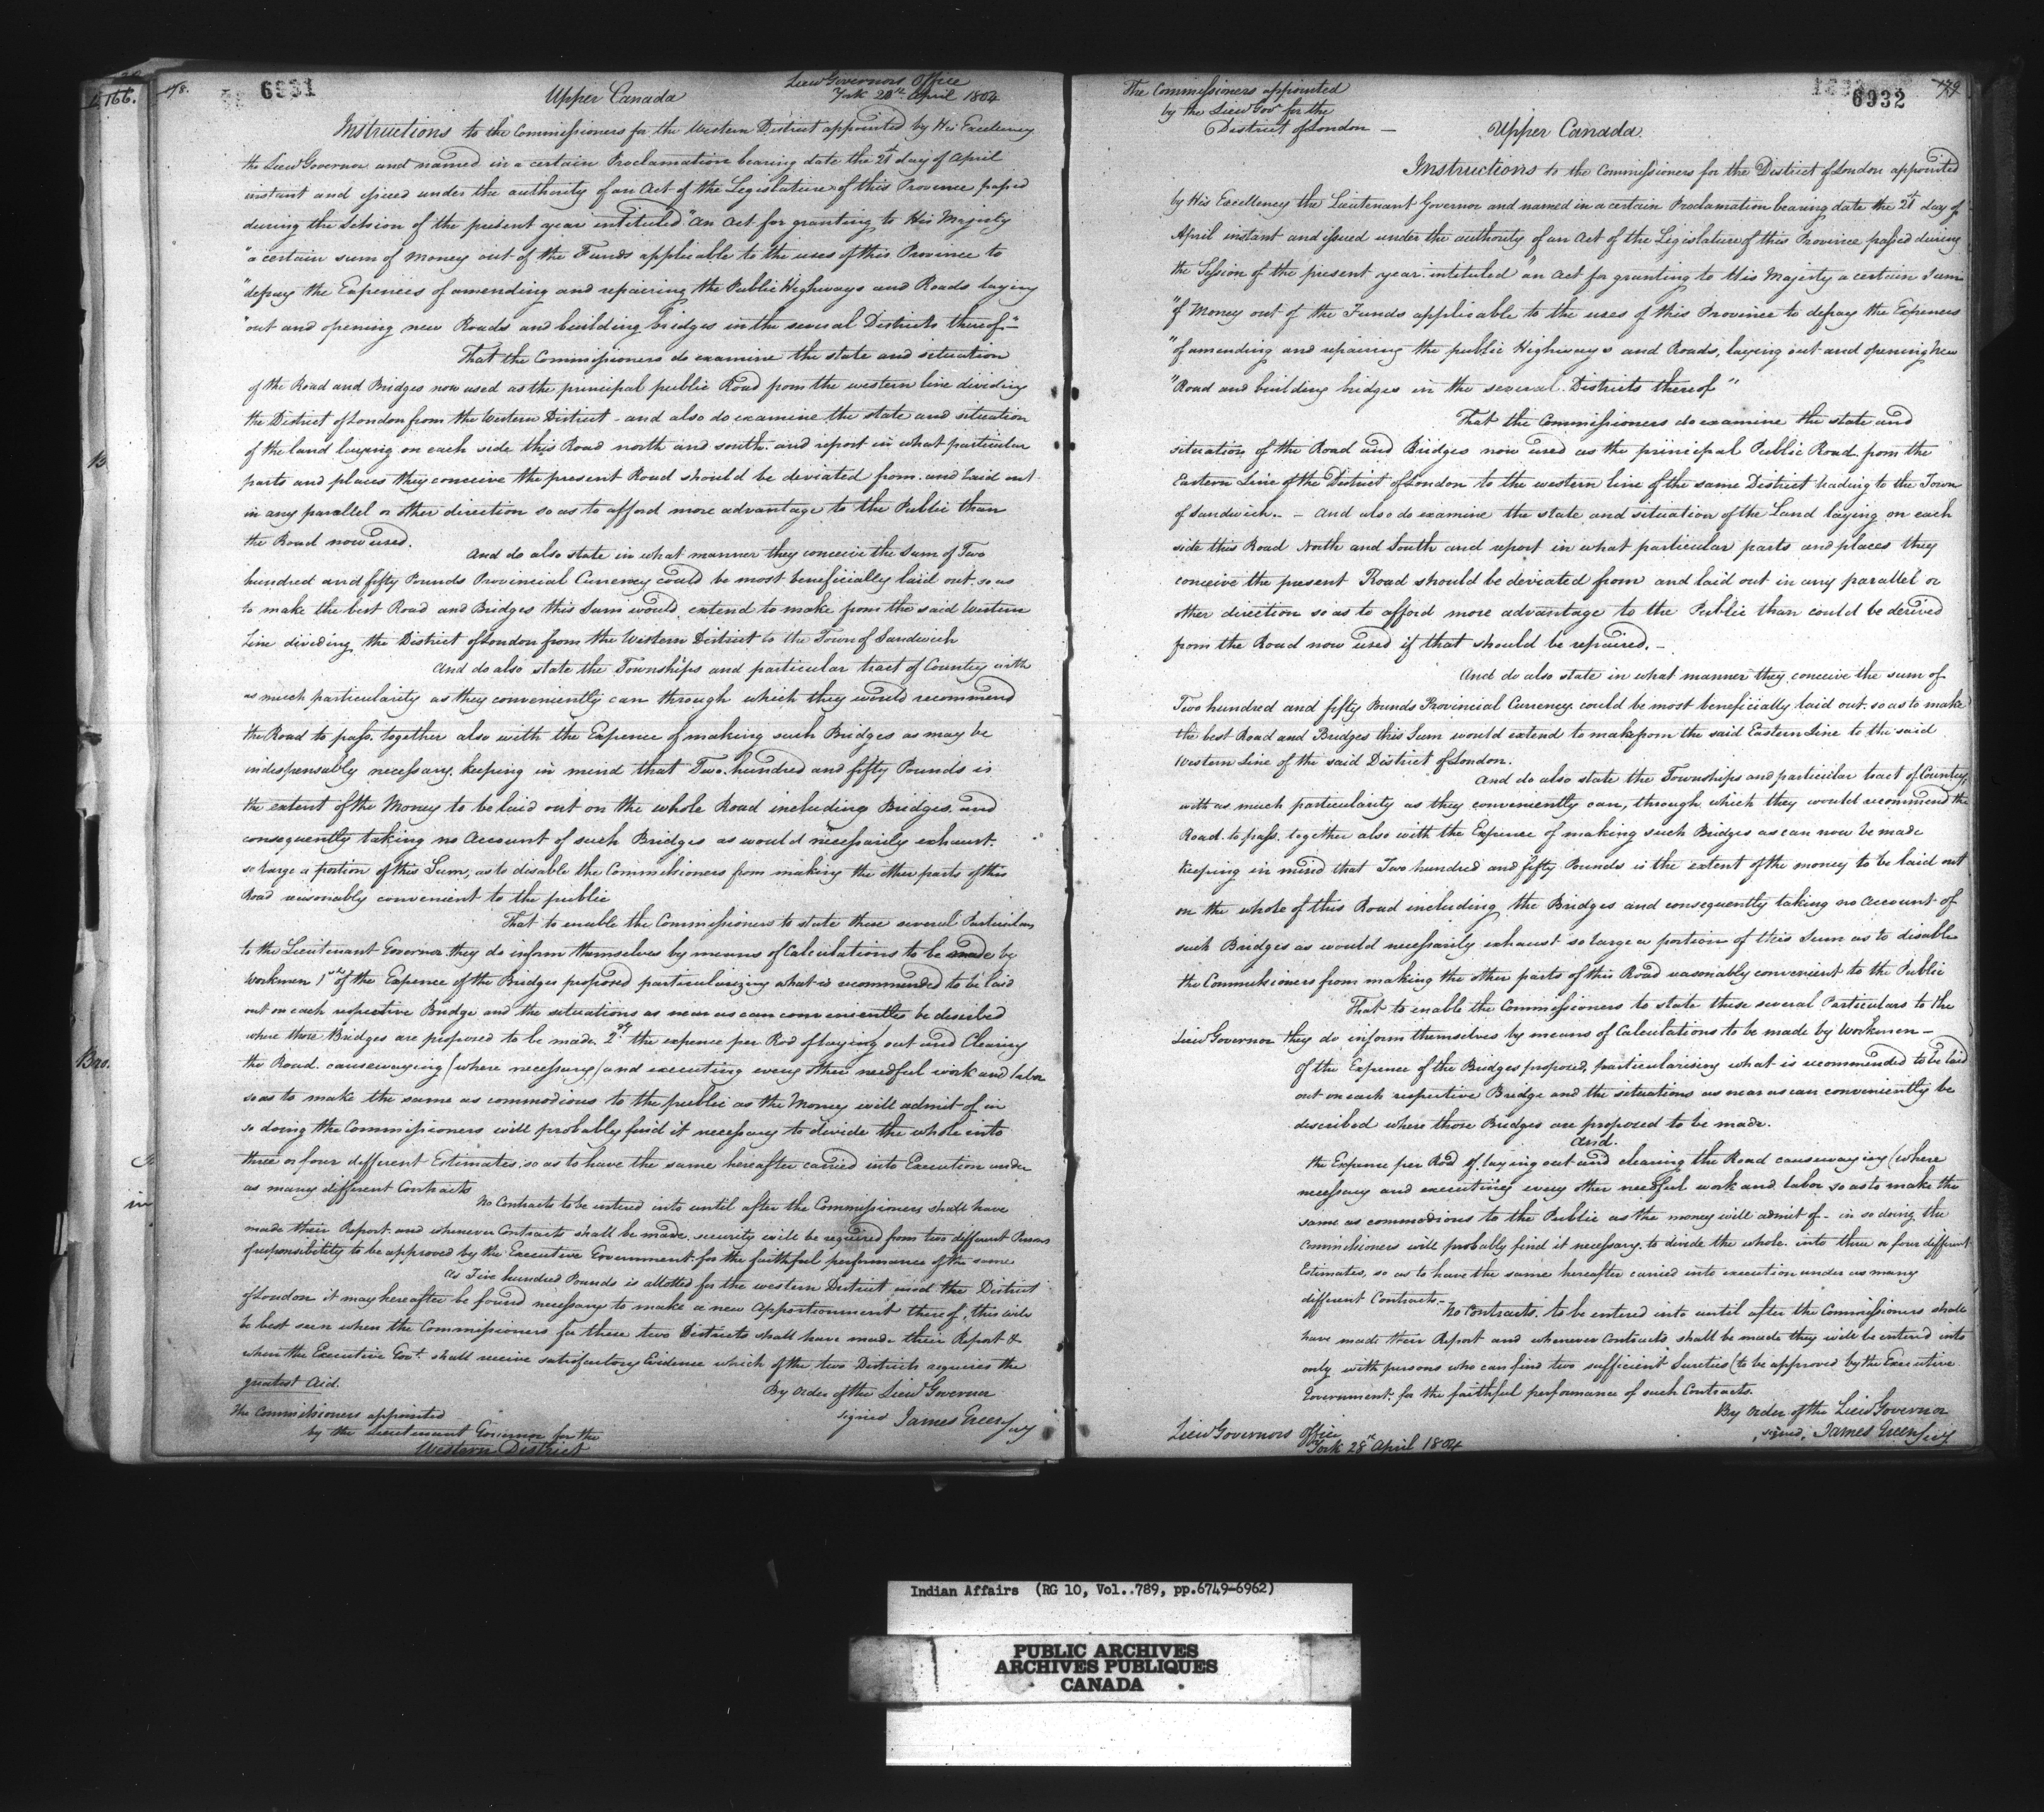 166.
178.
6931
Lieut Governors Office
York 28th April 1804
Upper Canada
Instructions to the Commissioners for the Western District appointed by His Excellency
the Lieut Governor and named in a certain Proclamation bearing date the 21st day of April
instant and issued under the authority of an Act of the Legislature of this Province passed
during the Session of the present year intituled "An Act for granting to His Majesty
"a certain sum of Money out of the Funds applicable to the uses of this Province to
"defray the Expences of amending and repairing the Public Highways and Roads laying
"out and opening new Roads and building bridges in the several Districts thereof"-
That the Commissioners do examine the state and situation
of the Road and Bridges now used as the principal public Road from the western line dividing
the District of London from the Western District - and also do examine the state and situation
of the land laying on each side this Road north and south. and report in what particular
parts and places they conceive the present Road should be deviated from. and laid out
in any parallel or other direction so as to afford more advantage to the Public than
the Road now used.
And do also state in what manner they conceive the Sum of Two
hundred and fifty Pounds Provincial Currency could be most beneficially laid out. so as
to make the best Road and Bridges this Sum would extend to make from the said Western
Line dividing the District of London from the Western District to the Town of Sandwich
And do also state the Townships and particular tract of Country with
as much particularity as they conveniently can through which they would recommend
the Road to pass. together also with the Expence of making such Bridges as may be
indespensably necessary. keeping in mind that Two hundred and fifty Pounds is
the extent of the Money to be laid out on the whole Road including Bridges. and
consequently taking no Account of such Bridges as would necessarily exhaust.
so large a portion of this Sum, as to disable the Commissioners from making the other parts of this
Road reasonably convenient to the public
That to enable the Commissioners to state these several Particulars
to the Lieutenant Governor they do inform themselves by means of Calculations to be made by
Workmen 1st of the Expence of the Bridges proposed particularizing what is recommended to be laid
out on each respective Bridge and the situations as near as can conveniently be described
where those Bridges are proposed to be made. 2dly the expence per Rod of laying out and Clearing
the Road. causewaying (where necessary) and executing every other needful work and labor
so as to make the same as commodious to the public as the Money will admit of in
so doing the Commissioners will probably find it necessary to divide the whole into
three or four different Estimates. so as to have the same hereafter carried into Execution under
as many different Contracts
No Contracts to be entered into until after the Commissioners shall have
made their Report. and whenever Contracts shall be made. security will be required from two different Persons
of responsibility to be approved by the Executive Government for the faithful performance of the same
As Five hundred Pounds is allotted for the western District and the District
of London it may hereafter be found necessary to make a new Apportionment thereof, this will
be best seen when the Commissioners for these two Districts shall have made their Report &
when the Executive Govt. shall receive satisfactory Evidence which of the two Districts requires the
greatest Aid.
By Order of the Lieut Governor
signed James Green Secy
The Commissioners appointed
by the Lieutenant Governor for the
Western District
179
6932
The Commissioners appointed
by the Lieut Govr for the
District of London -
Upper Canada
Instructions to the Commissioners for the District of London appointed
by His Excellency the Lieutenant Governor and named in a certain Proclamation bearing date the 21st day of
April instant and issued under the authority of an Act of the Legislature of this Province passed during
the Session of the present year. intituled "an Act for granting to His Majesty a certain Sum
"of Money out of the Funds applicable to the uses of this Province to defray the Expences
"of amending and repairing the public Highways and Roads, laying out and opening New
"Road and building bridges in the several Districts thereof"
That the Commissioners do examine the state and
situation of the Road and Bridges now used as the principal Public Road from the
Eastern Line of the District of London to the western line of the same District leading to the Town
of Sandwich. - And also do examine the state and situation of the Land laying on each
side this Road North and South and report in what particular parts and places they
conceive the present Road should be deviated from and laid out in any parallel or
other direction so as to afford more advantage to the Public than could be derived
from the Road now used if that should be repaired. -
And do also state in what manner they conceive the sum of
Two hundred and fifty Pounds Provincial Currency could be most beneficially laid out. so as to make
the best Road and Bridges this Sum would extend to make from the said Eastern Line to the said
Western Line of the said District of London.
And do also state the Townships and particular tract of Country,
with as much particularity as they conveniently can, through which they would recommend the
Road to pass. together also with the Expence of making such Bridges as can now be made
keeping in mind that Two hundred and fifty Pounds is the extent of the money to be laid out
on the whole of this Road including the Bridges and consequently taking no account of
such Bridges as would necessarily exhaust so large a portion of this Sum as to disable
the Commissioners from making the other parts of this Road reasonably convenient to the Public
That to enable the Commissioners to state these several Particulars to the
Lieut Governor they do inform themselves by means of Calculations to be made by Workmen -
of the Expence of the Bridges proposed, particularising what is recommended to be laid
out on each respective Bridge and the situations as near as can conveniently be
described where those Bridges are proposed to be made.
And.
the Expence per Rod of laying out and clearing the Road causewaying (where
necessary and executing every other needful work and labor so as to make the
same as commodious to the Public as the money will admit of - in so doing the
Commissioners will probably find it necessary. to divide the whole into three or four different
Estimates, so as to have the same hereafter carried into execution under as many
different Contracts -
No Contracts. to be entered into until after the Commissioners shall
have made their Report and whenever Contracts shall be made they will be entered into
only with persons who can find two sufficient Sureties (to be approved by the Executive
Government. for the faithful performance of such Contracts.
By Order of the Lieut Governor
signed, James Green Secy
Lieut Governors Office
York 28th April 1804
Indian Affairs (RG 10, Vol..789, pp.6749-6962)
PUBLIC ARCHIVES
ARCHIVES PUBLIQUES
CANADA